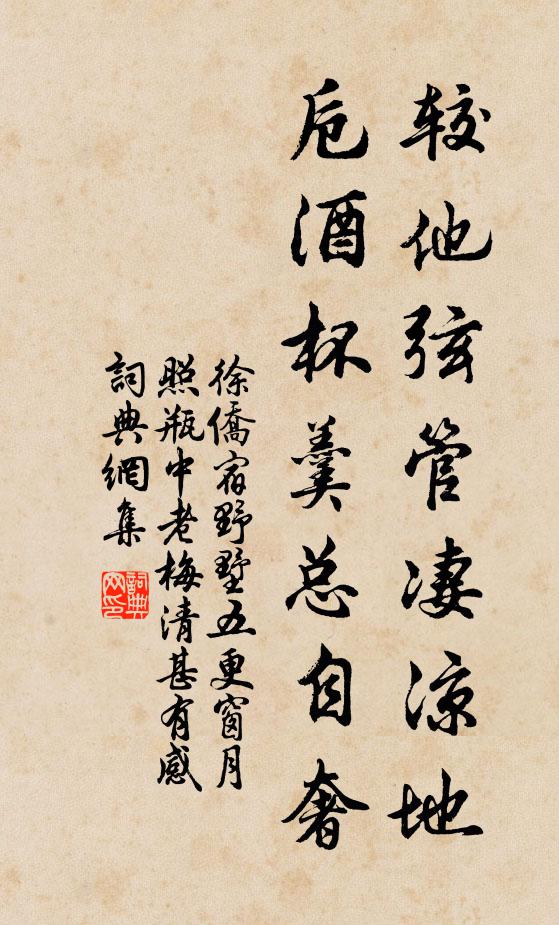 较他弦管凄凉地
卮酒杯羹总自奢
徐僑宿野墅五更窗月
照瓶中老梅清甚有感
詞典網集
詞典網印